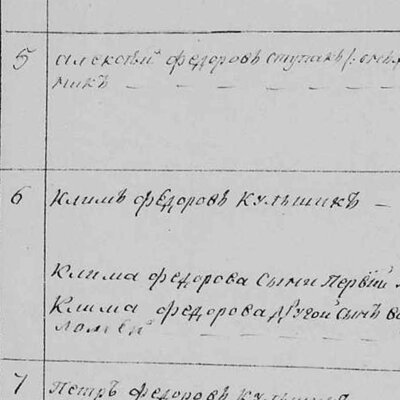 5 алексѣй федоровъ ступакъ
микъ
6 Климъ федоровъ кульшикъ
Клима федорова сынъ первый
Клима федорова другой сынъ
ломей
7 петръ федоровъ